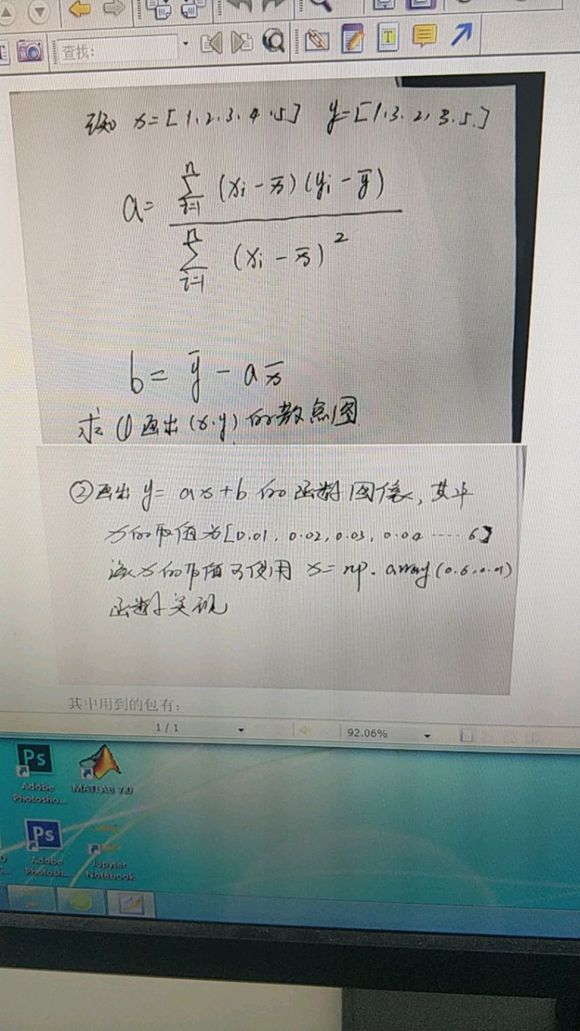 查找:
已知 x=[1,2,3,4,5] y=[1,3,2,3,5]
a= \frac{\sum_{i=1}^{n} (x_i-\bar{x})(y_i-\bar{y})}{\sum_{i=1}^{n} (x_i-\bar{x})^2}
b= \bar{y} - a\bar{x}
求 ①画出(x,y)的散点图
②画出 y= ax+b 的函数图像,其中
x的取值为[0.01, 0.02, 0.03, 0.04 ····· 6]
该x的取值可使用 x= np. array(0.6,0.01)
函数实现
其中用到的包有:
1 / 1
92.06%
Ps
Adobe
Photosho...
MATLAB 7.0
Ps
Adobe
Photosh...
Jupyter
Notebook